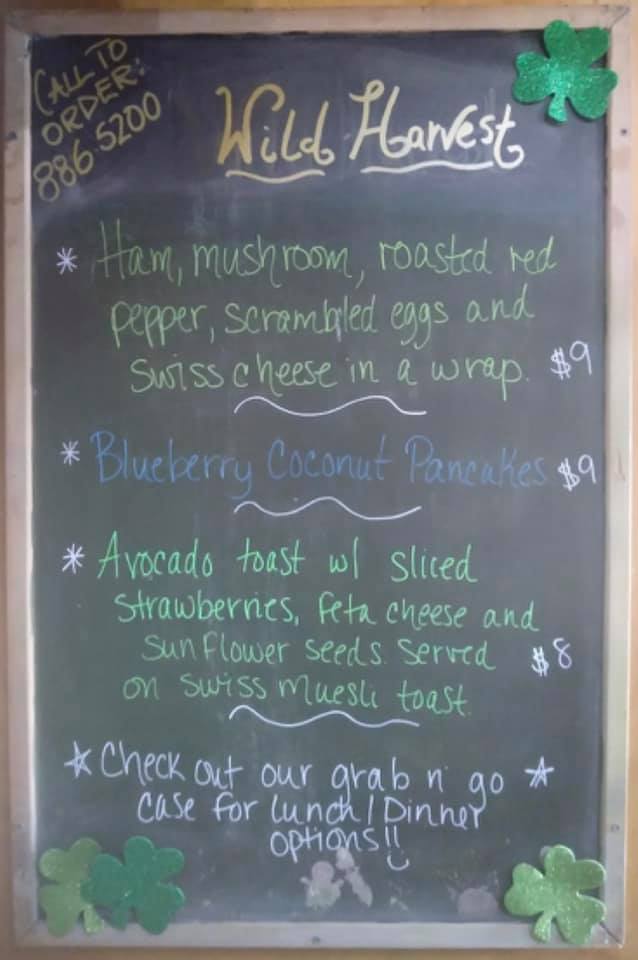 CALL TO
ORDER:
886.5200
Wild Harvest
* Ham, mushroom, roasted red
pepper, scrambled eggs and
swiss cheese in a wrap. $9
* Blueberry Coconut Pancakes $9
* Avocado toast w/ sliced
strawberries, feta cheese and
sunflower seeds. Served $8
on swiss muesli toast.
☆ Check out our grab n' go ☆
case for lunch/Dinner
options!!